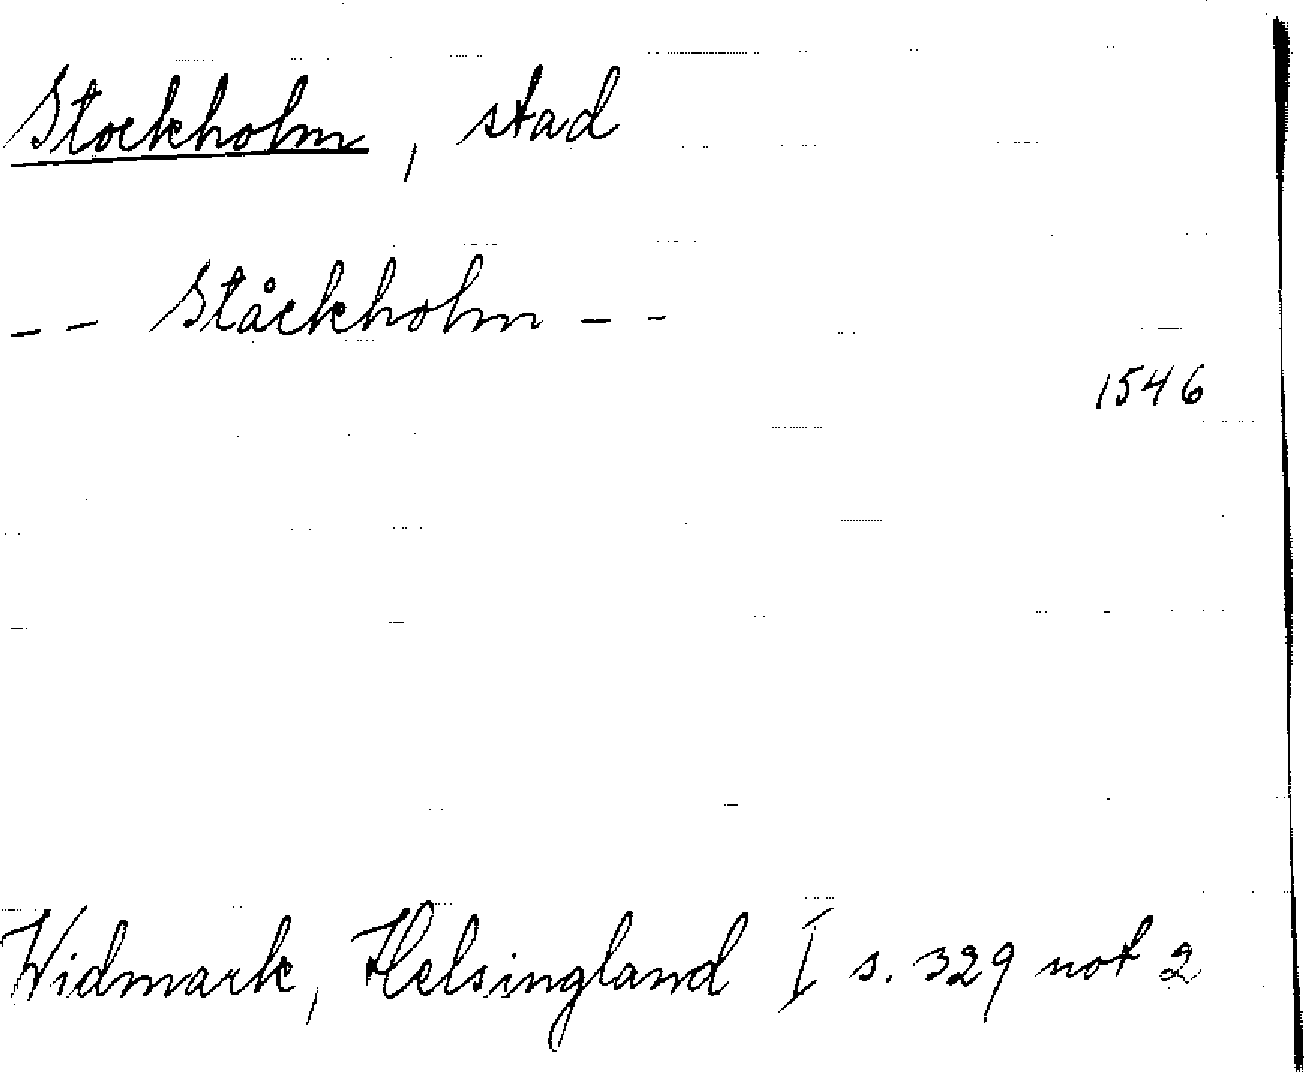 Stockholm, stad
-- Ståckholm --
1546
Widmark, Helsingland I s. 329 not 2